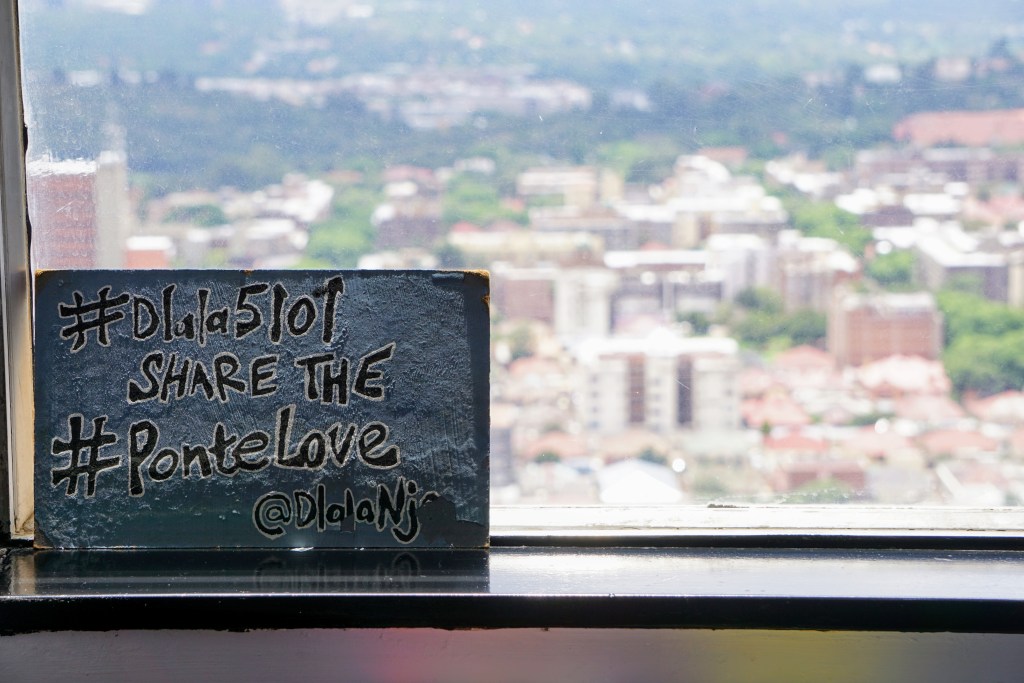 #Dlala5101
SHARE THE
#PonteLove
@DlalaNj